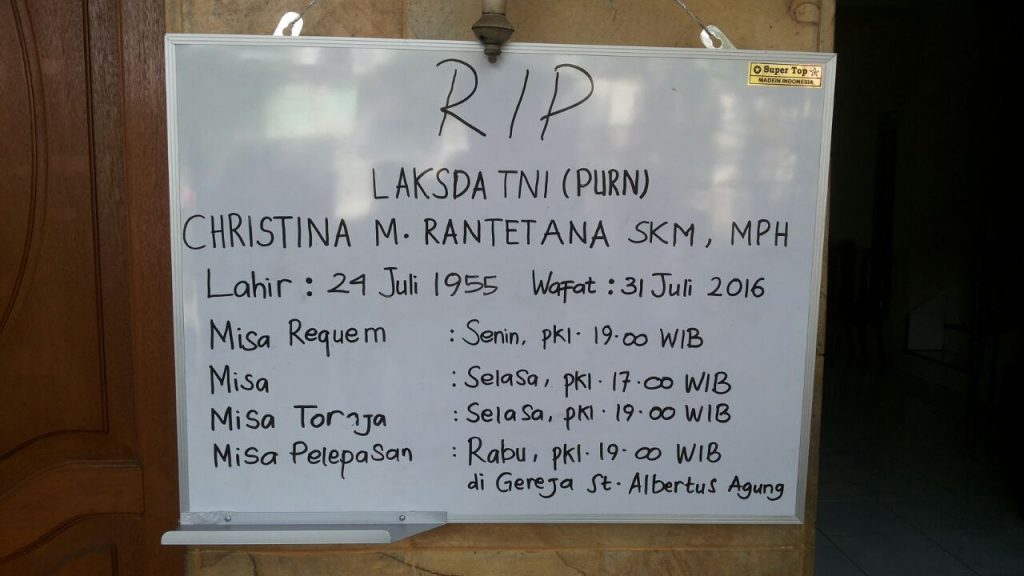 Super Top
MADEIN INDONESIA
RIP
LAKSDA TNI (PURN)
CHRISTINA M. RANTETANA SKM, MPH
Lahir : 24 Juli 1955 Wafat : 31 Juli 2016
Misa Requem : Senin, pkl. 19.00 WIB
Misa : Selasa, pkl. 17.00 WIB
Misa Toraja : Selasa, pkl. 19.00 WIB
Misa Pelepasan : Rabu, pkl. 19.00 WIB
di Gereja St. Albertus Agung